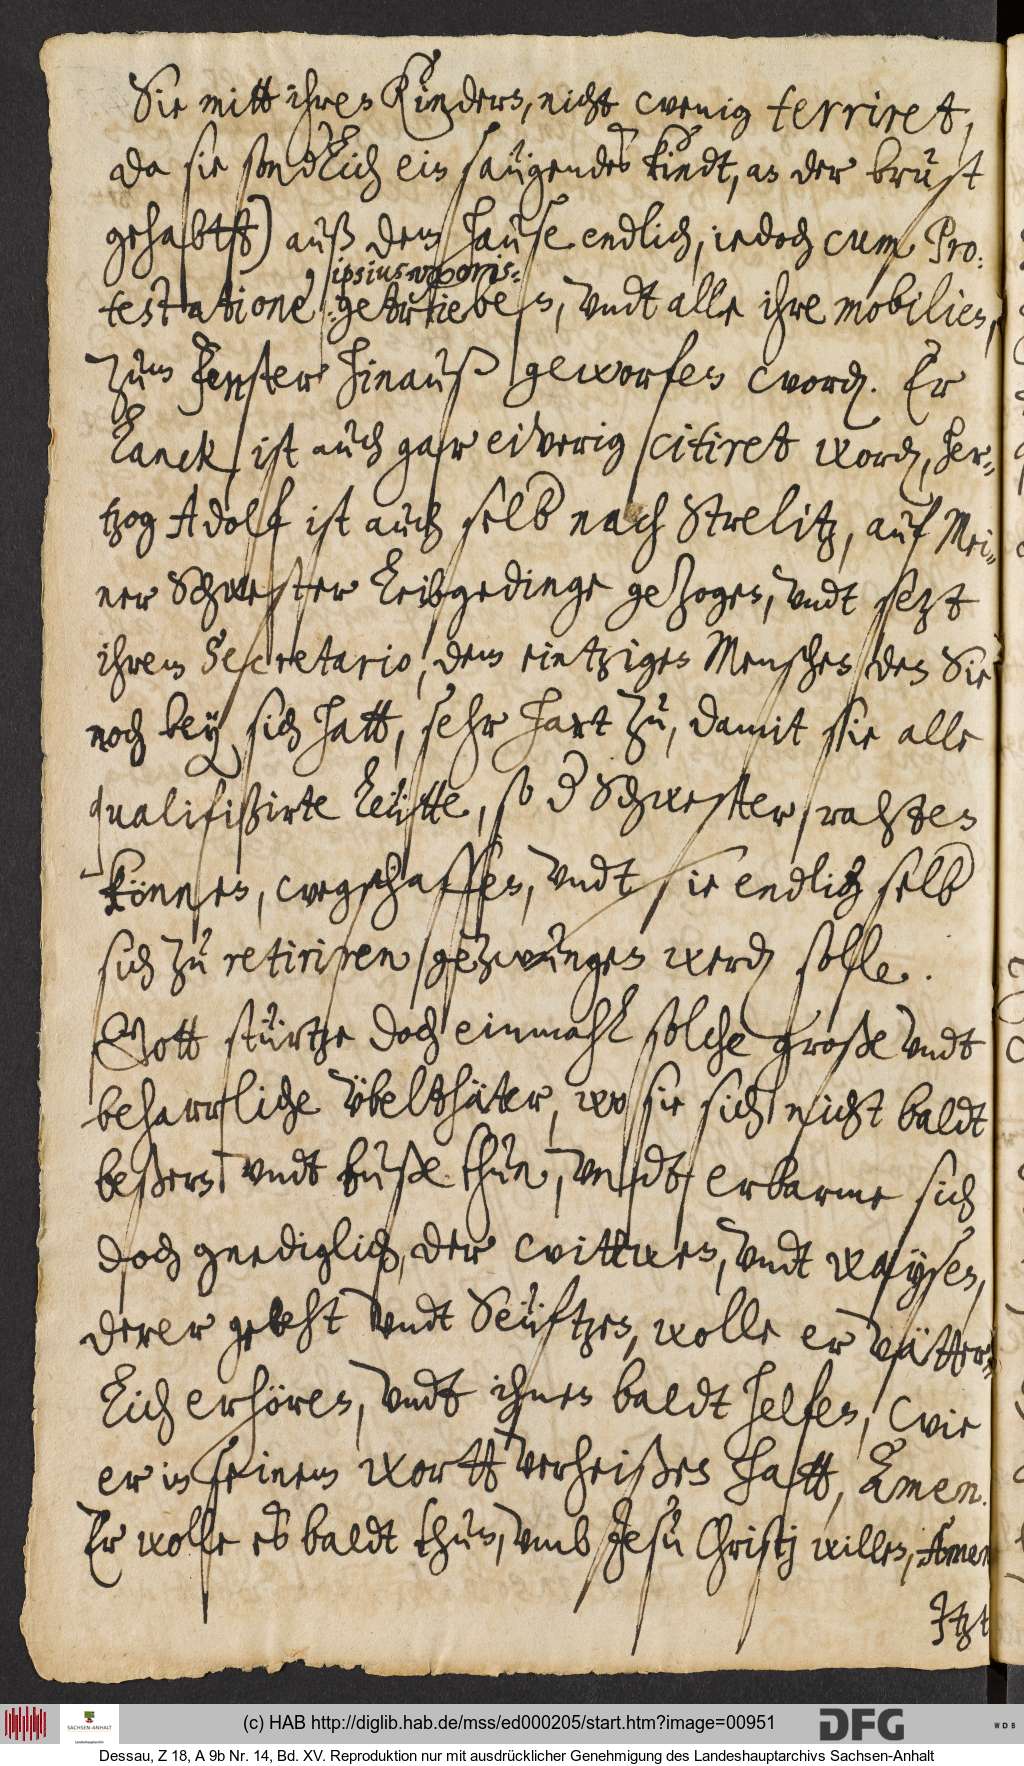 Sie mitt ihren Kindern, nicht wenig terriret,
da sie sonderlich ein saugendes kindt, an der brust
gehabtt) auß dem hause endlich, iedoch cum Pro:
testatione ipsius uxoris getrieben, undt alle ihre mobilien,
zum Fenster hinauß geworfen word. Er
Lanck, ist auch gar eiverig citiret word, Her=
tzog Adolf ist auch selb nach Strelitz, auf Mei=
ner Schwester Leibgedinge gezogen, undt sezt
ihrem Secretario, dem eintzigen Menschen den Sie
noch bey sich hatt, sehr hart zu, damit sie alle
qualifizirte Leütte, so der Schwester rahten
können, wegschaffen, undt sie endlich selb
sich zu retiriren gezwungen werd solle.
Gott stürtze doch einmahl solche große undt
beharrliche übelthäter, wo sie sich nicht baldt
beßern undt buße thun, undt erbarme sich
doch gnediglich, der wittwen, undt waysen,
derer gebeht undt Seüftzen, wolle er vätter=
lich erhören, undt ihnen baldt helfen, wie
er in seinem wortt verheißen hatt, Amen.
Er wolle es baldt thun, umb Jesu Christj willen, Amen
Jtzt
(c) HAB http://diglib.hab.de/mss/ed000205/start.htm?image=00951
SACHSEN-ANHALT
DFG
WDB
Dessau, Z 18, A 9b Nr. 14, Bd. XV. Reproduktion nur mit ausdrücklicher Genehmigung des Landeshauptarchivs Sachsen-Anhalt